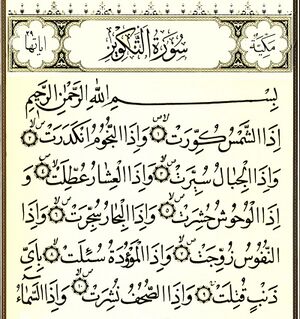 مكية سورة التكوير آياتها ٢٩
بِسْمِ اللهِ الرَّحْمٰنِ الرَّحِيْمِ
اِذَا الشَّمْسُ كُوِّرَتْ ۝١ وَاِذَا النُّجُوْمُ انْكَدَرَتْ ۝٢
وَاِذَا الْجِبَالُ سُيِّرَتْ ۝٣ وَاِذَا الْعِشَارُ عُطِّلَتْ ۝٤ وَ
اِذَا الْوُحُوْشُ حُشِرَتْ ۝٥ وَاِذَا الْبِحَارُ سُجِّرَتْ ۝٦ وَاِذَا
النُّفُوْسُ زُوِّجَتْ ۝٧ وَاِذَا الْمَوْءٗدَةُ سُئِلَتْ ۝٨ بِاَيِّ
ذَنْۢبٍ قُتِلَتْ ۝٩ وَاِذَا الصُّحُفُ نُشِرَتْ ۝١٠ وَاِذَا السَّمَآءُ